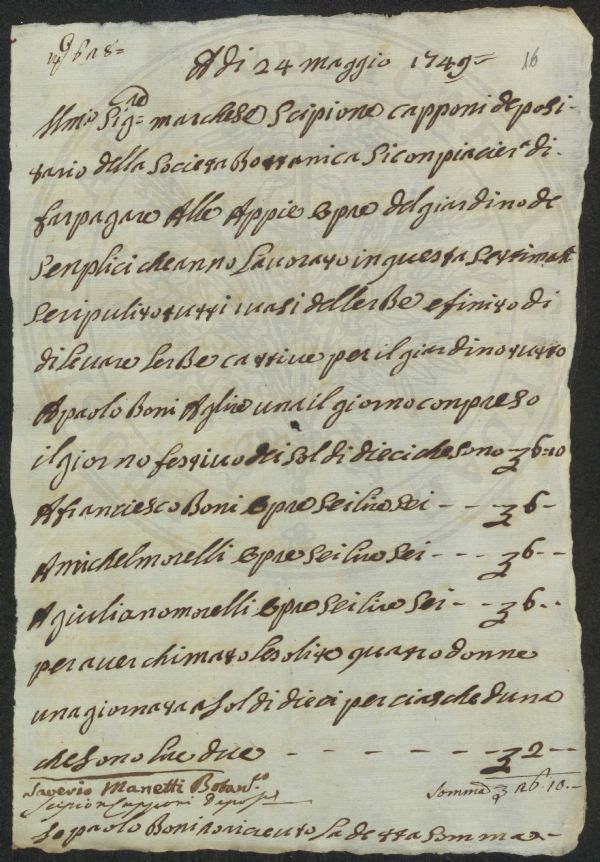 A di 24 maggio 1749 16
Illmo Sigre marchese Scipione capponi deposi
tario della Societa Bottanica Si conpiaciera di
far pagare Alle Appie opre del giardino de
Senplici che anno Lavorato in questa Settimana
Se ripulito tutti i vasi dellerBe e finito di
di levare lerBe cattive per il giardino tutto
A paolo Boni A lire una il giorno conpreso
il giorno festivo di Soldi dieci che sono 6:10
A franciesco Boni opre Sei lire Sei - - - 6 - -
A michel morelli opre Sei lire Sei - - - 6 - -
A giuliano morelli opre Sei lire Sei - - - 6 - -
per aver chimato le solite quatro donne
una giornata a Soldi dieci per ciascheduna
che Sono lire due - - - - - - 2 - -
Saverio Manetti Botanco
Scipion Capponi depos Somma 26.10.-
Io paolo Boni o riceuto La detta Somma